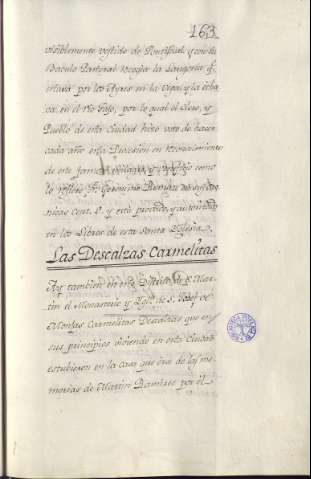 163
visiblemente vestido de Pontifical y con su
Baculo Pastoral recogia la Langosta q.e
estava por los Ayres en la Vega, y la echa
ca en el rio Tajo, por lo qual el Clero, y
Pueblo de esta Ciudad hizo voto de hacer
cada año esta Procesion en reconocimiento
de este famoso milagro y como
lo refiere Fr. Geronimo Roman
nicas Cent. y esta pintado, y autorizado
en los Libros de esta Santa Iglesia.
Las Descalzas Carmelitas
Ay tambien en este Distrito de S. Mar-
tin el Monasterio y Igl.a de S. Josef de
Monjas Carmelitas Descalzas que en
sus principios viniendo en esta Ciudad
estubieron en la casa que era de las me-
morias de Martin Ramirez por el